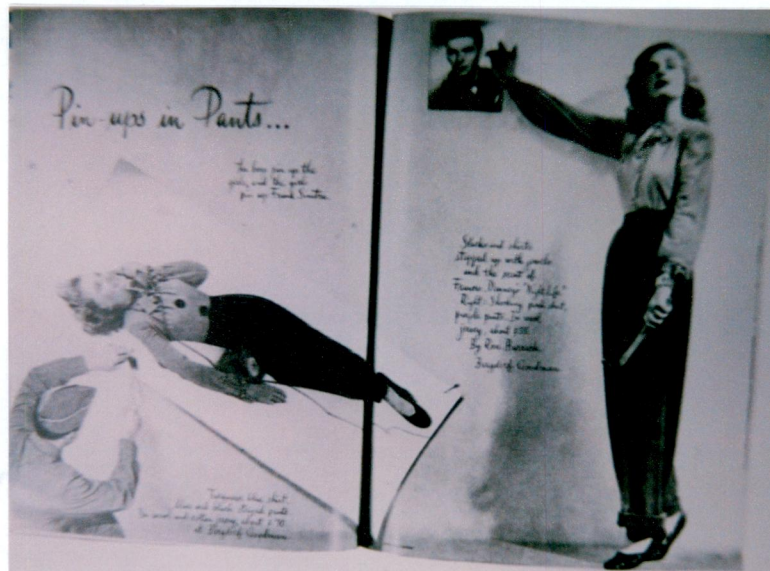 Pin-ups in Pants...
The boys pin up the
girls, and the girls
pin up Frank Sinatra.
Slacks and shirts
with jewels
and the scent of
"Night Life."
Right: Shocking pink shirt,
purple pants. In wool
jersey, about
By
Bergdorf Goodman
Turquoise blue shirt.
Blue and black striped pants
In wool and cotton jersey, about $70.
at Bergdorf Goodman